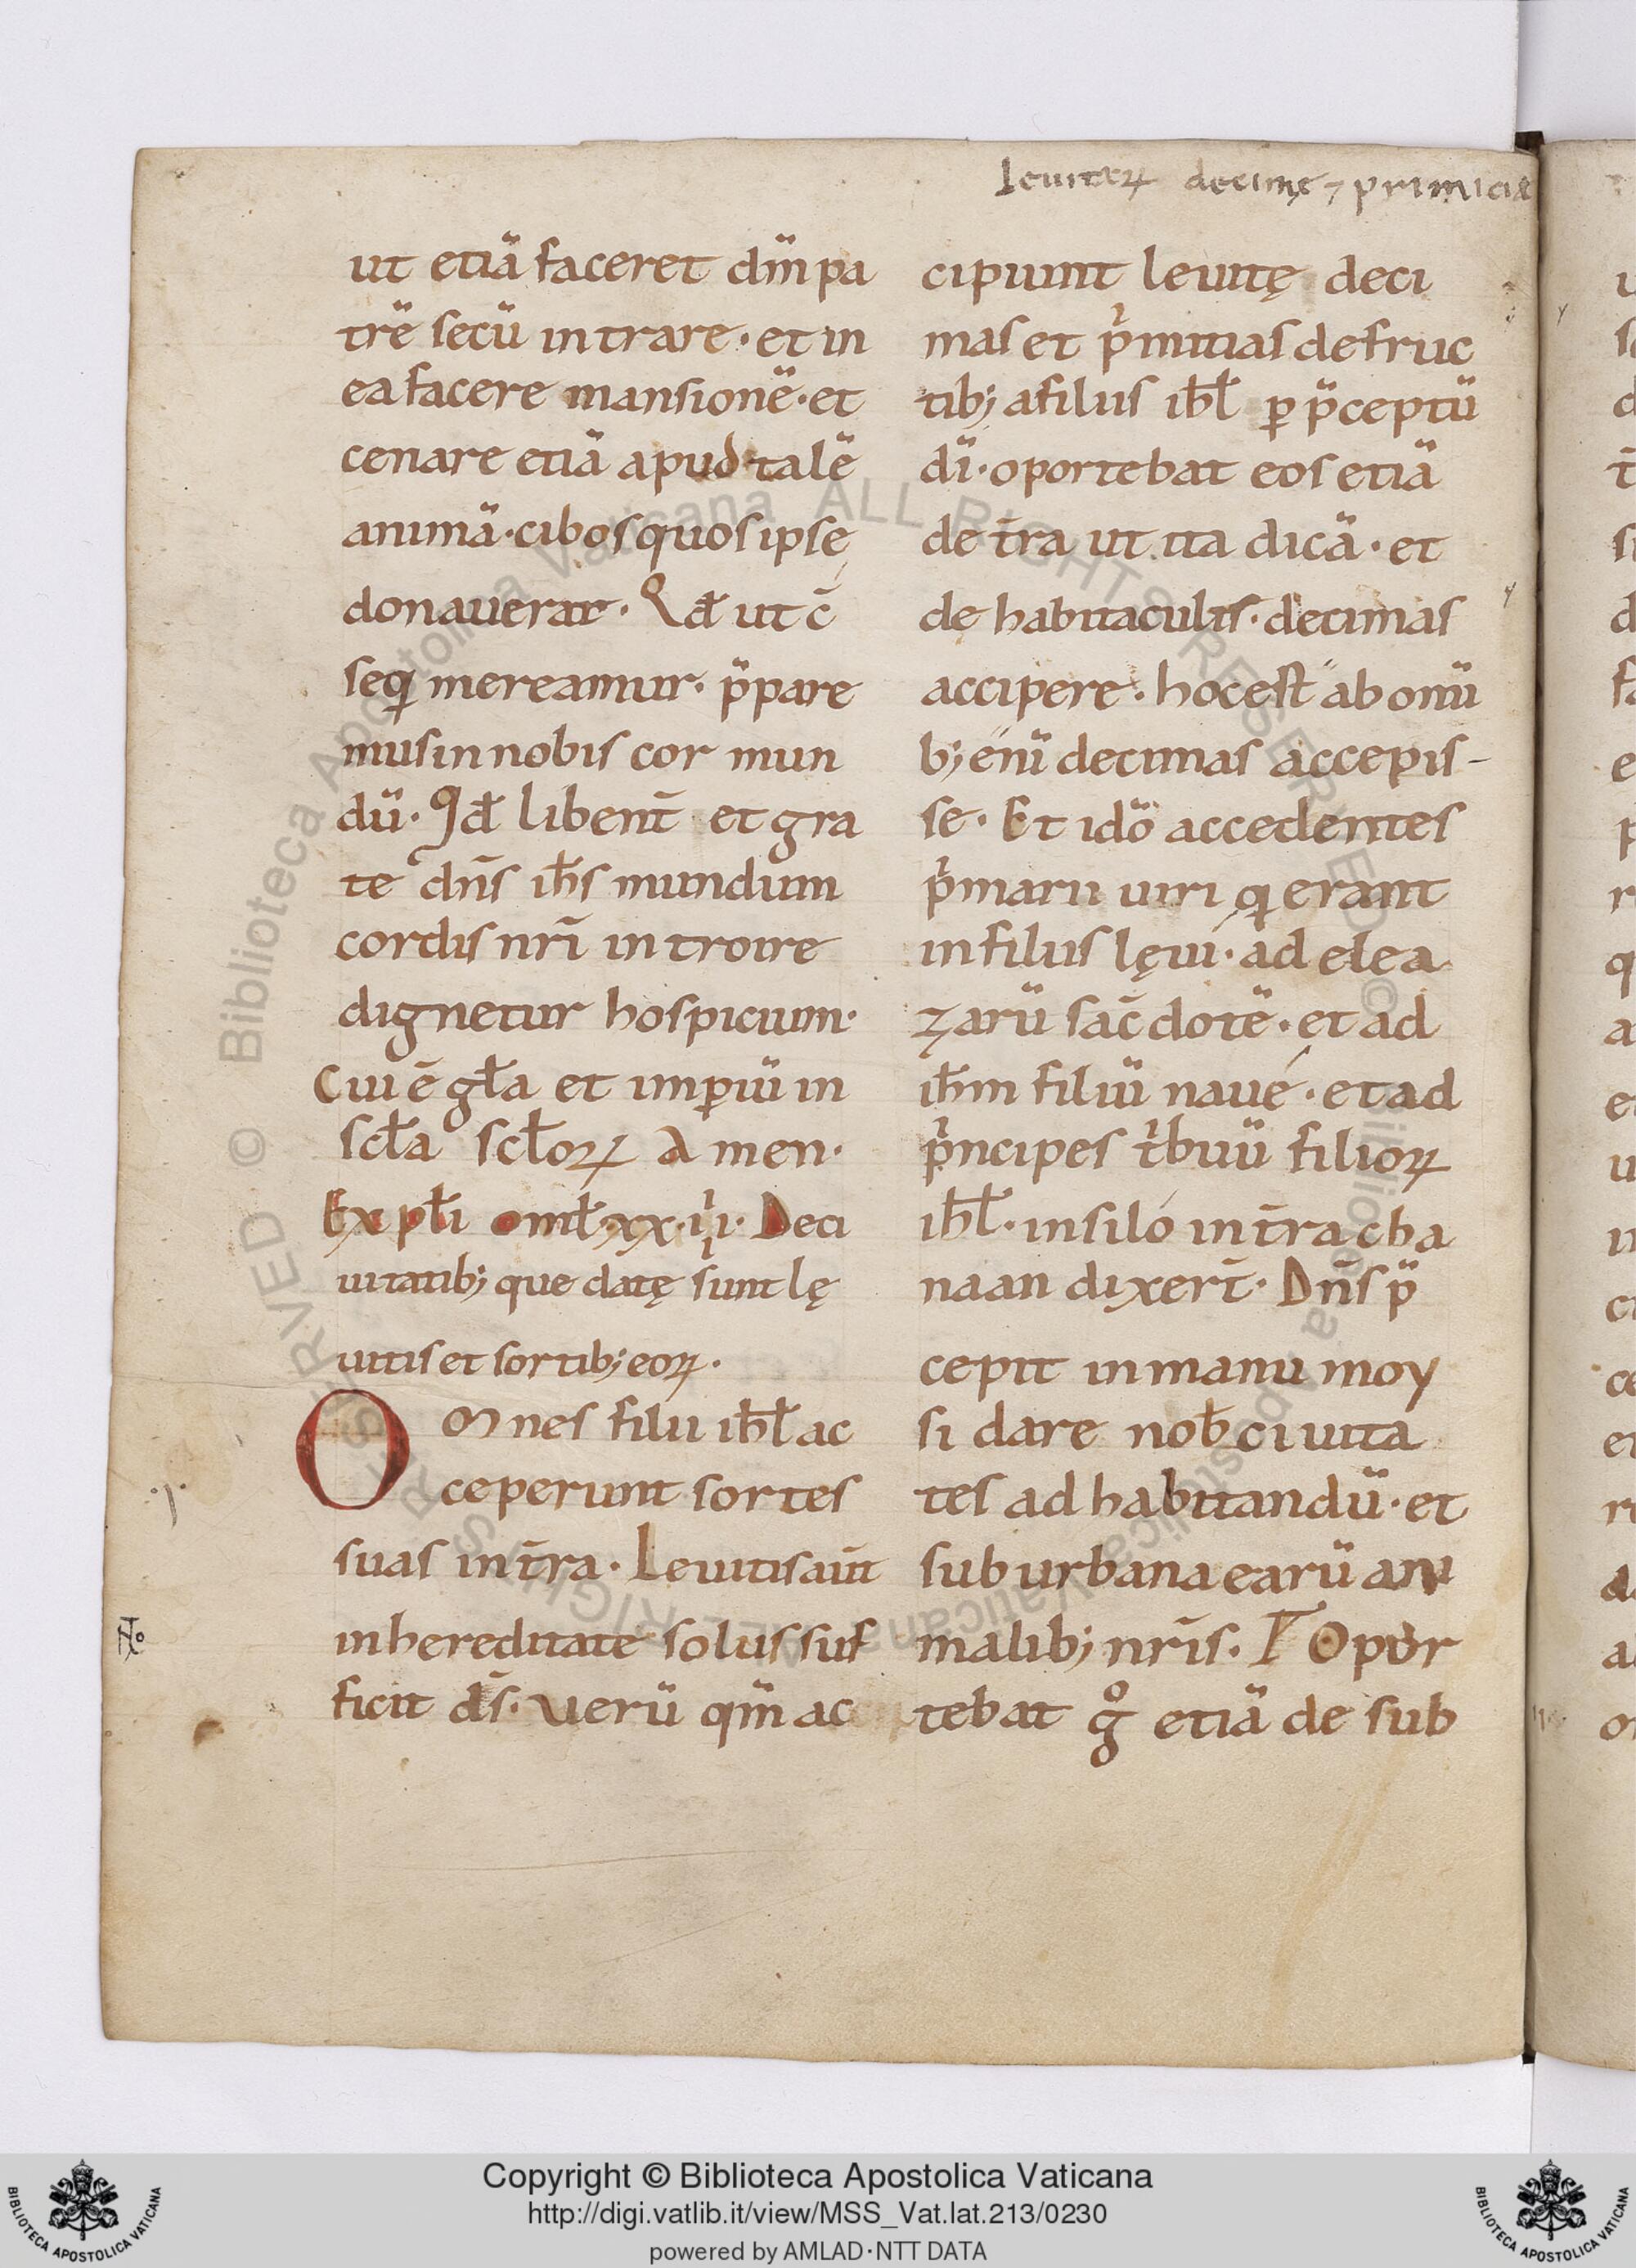 leuitaꝝ decimę ⁊ primiciæ
ut etiā faceret dn̄m pa
trē secū intrare · et in
ea facere mansionē · et
cenare etiā apud talē
animā · cibos quos ipse
donauerat · Qd̄ ut c̄
seqi mereamur · p̄pare
mus in nobis cor mun
dū · Qd̄ libent̄ et gra
te dn̄s ih̄s mundum
cordis nr̄i introire
dignetur hospicium ·
Cui ē gł̄a et imꝑiū in
scł̄a scł̄oꝝ Amen ·
Expł̄i omł̄ · xx · iiii · De ci
uitatib; que datę sunt lę
uitis et sortib; eoꝝ ·
Omnes filii ih̄ł ac
ceperunt sortes
suas in t̄ra · Leuitis aut̄
in hereditate solus suf
ficit d̄s · Verū qm̄ ac
cipiunt leuitę deci
mas et pͥmitias de fruc
tib; a filiis ih̄ł ꝑ p̄ceptū
dī · oportebat eos etiā
de t̄ra ut ita dicā · et
de habitaculis · decimas
accipere · hoc est ab omī
b; enī decimas accepis-
se · Et idō accedentes
pͥmarii uiri qi erant
in filiis lęui · ad elea
zarū sac̄dotē · et ad
ih̄m filiū naue · et ad
pͥncipes tͥbuū filioꝝ
ih̄ł · in silo in t̄ra cha
naan dixer̄t · Dn̄s p̄
cepit in manu moy
si dare nob̄ ciuita
tes ad habitandū · et
suburbana earū ani
malib; nr̄is · Opor
tebat gͦ etiā de sub
Copyright © Biblioteca Apostolica Vaticana
http://digi.vatlib.it/view/MSS_Vat.lat.213/0230
powered by AMLAD·NTT DATA